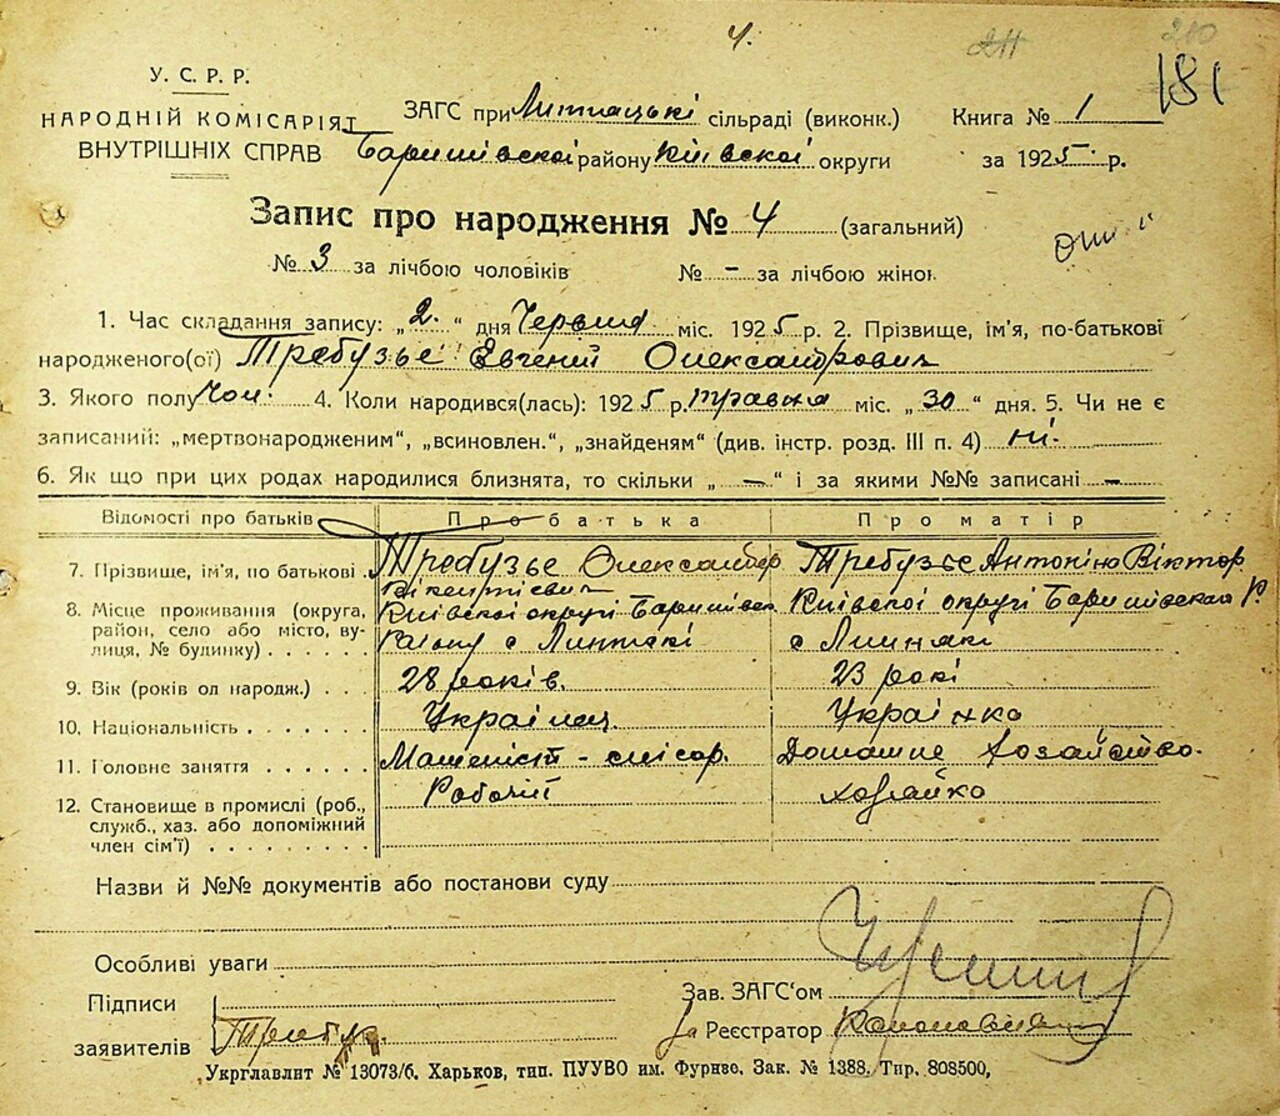 4.
211
210
181
У. С. Р. Р.
НАРОДНІЙ КОМІСАРІЯТ
ВНУТРІШНІХ СПРАВ
ЗАГС при сільраді (виконк.)
Баришівскоі району Київскоі округи
Книга № 1
за 1925 р.
Запис про народження № 4 (загальний)
№ 3 за лічбою чоловіків № – за лічбою жінок
1. Час складання запису: „2.“ дня Червня міс. 1925 р. 2. Прізвище, ім'я, по-батькові
народженого(ої) Требузье Евгений Олександрович
3. Якого полу Чол. 4. Коли народився(лась): 1925 р. травня міс. „30“ дня. 5. Чи не є
записаний: „мертвонародженим“, „всиновлен.“, „знайденям“ (див. інстр. розд. III п. 4) ні.
6. Як що при цих родах народилися близнята, то скільки „ — “ і за якими №№ записані –
Відомості про батьків Про батька Про матір
7. Прізвище, ім'я, по батькові Требузье Олександер Вікентієвич Требузье Антоніна Віктор.
8. Місце проживання (округа, Київскоі округі Баришівск. Київскоі округі Баришівскоі Р.
район, село або місто, ву- с с
лиця, № будинку)
9. Вік (років ол народж.) 28 років. 23 рокі
10. Національність Украінец. Украінка
11. Головне заняття Машеніст - слісар. Домашне хозайство.
12. Становище в промислі (роб., Робочій хозяйка
служб., хаз. або допоміжний
член сім'ї)
Назви й №№ документів або постанови суду
Особливі уваги
Підписи
заявителів
Зав. ЗАГС'ом
Реєстратор
Укрглавлит № 13073/б. Харьков, тип. ПУУВО им. Фрунзе. Зак. № 1388. Тир. 808500,